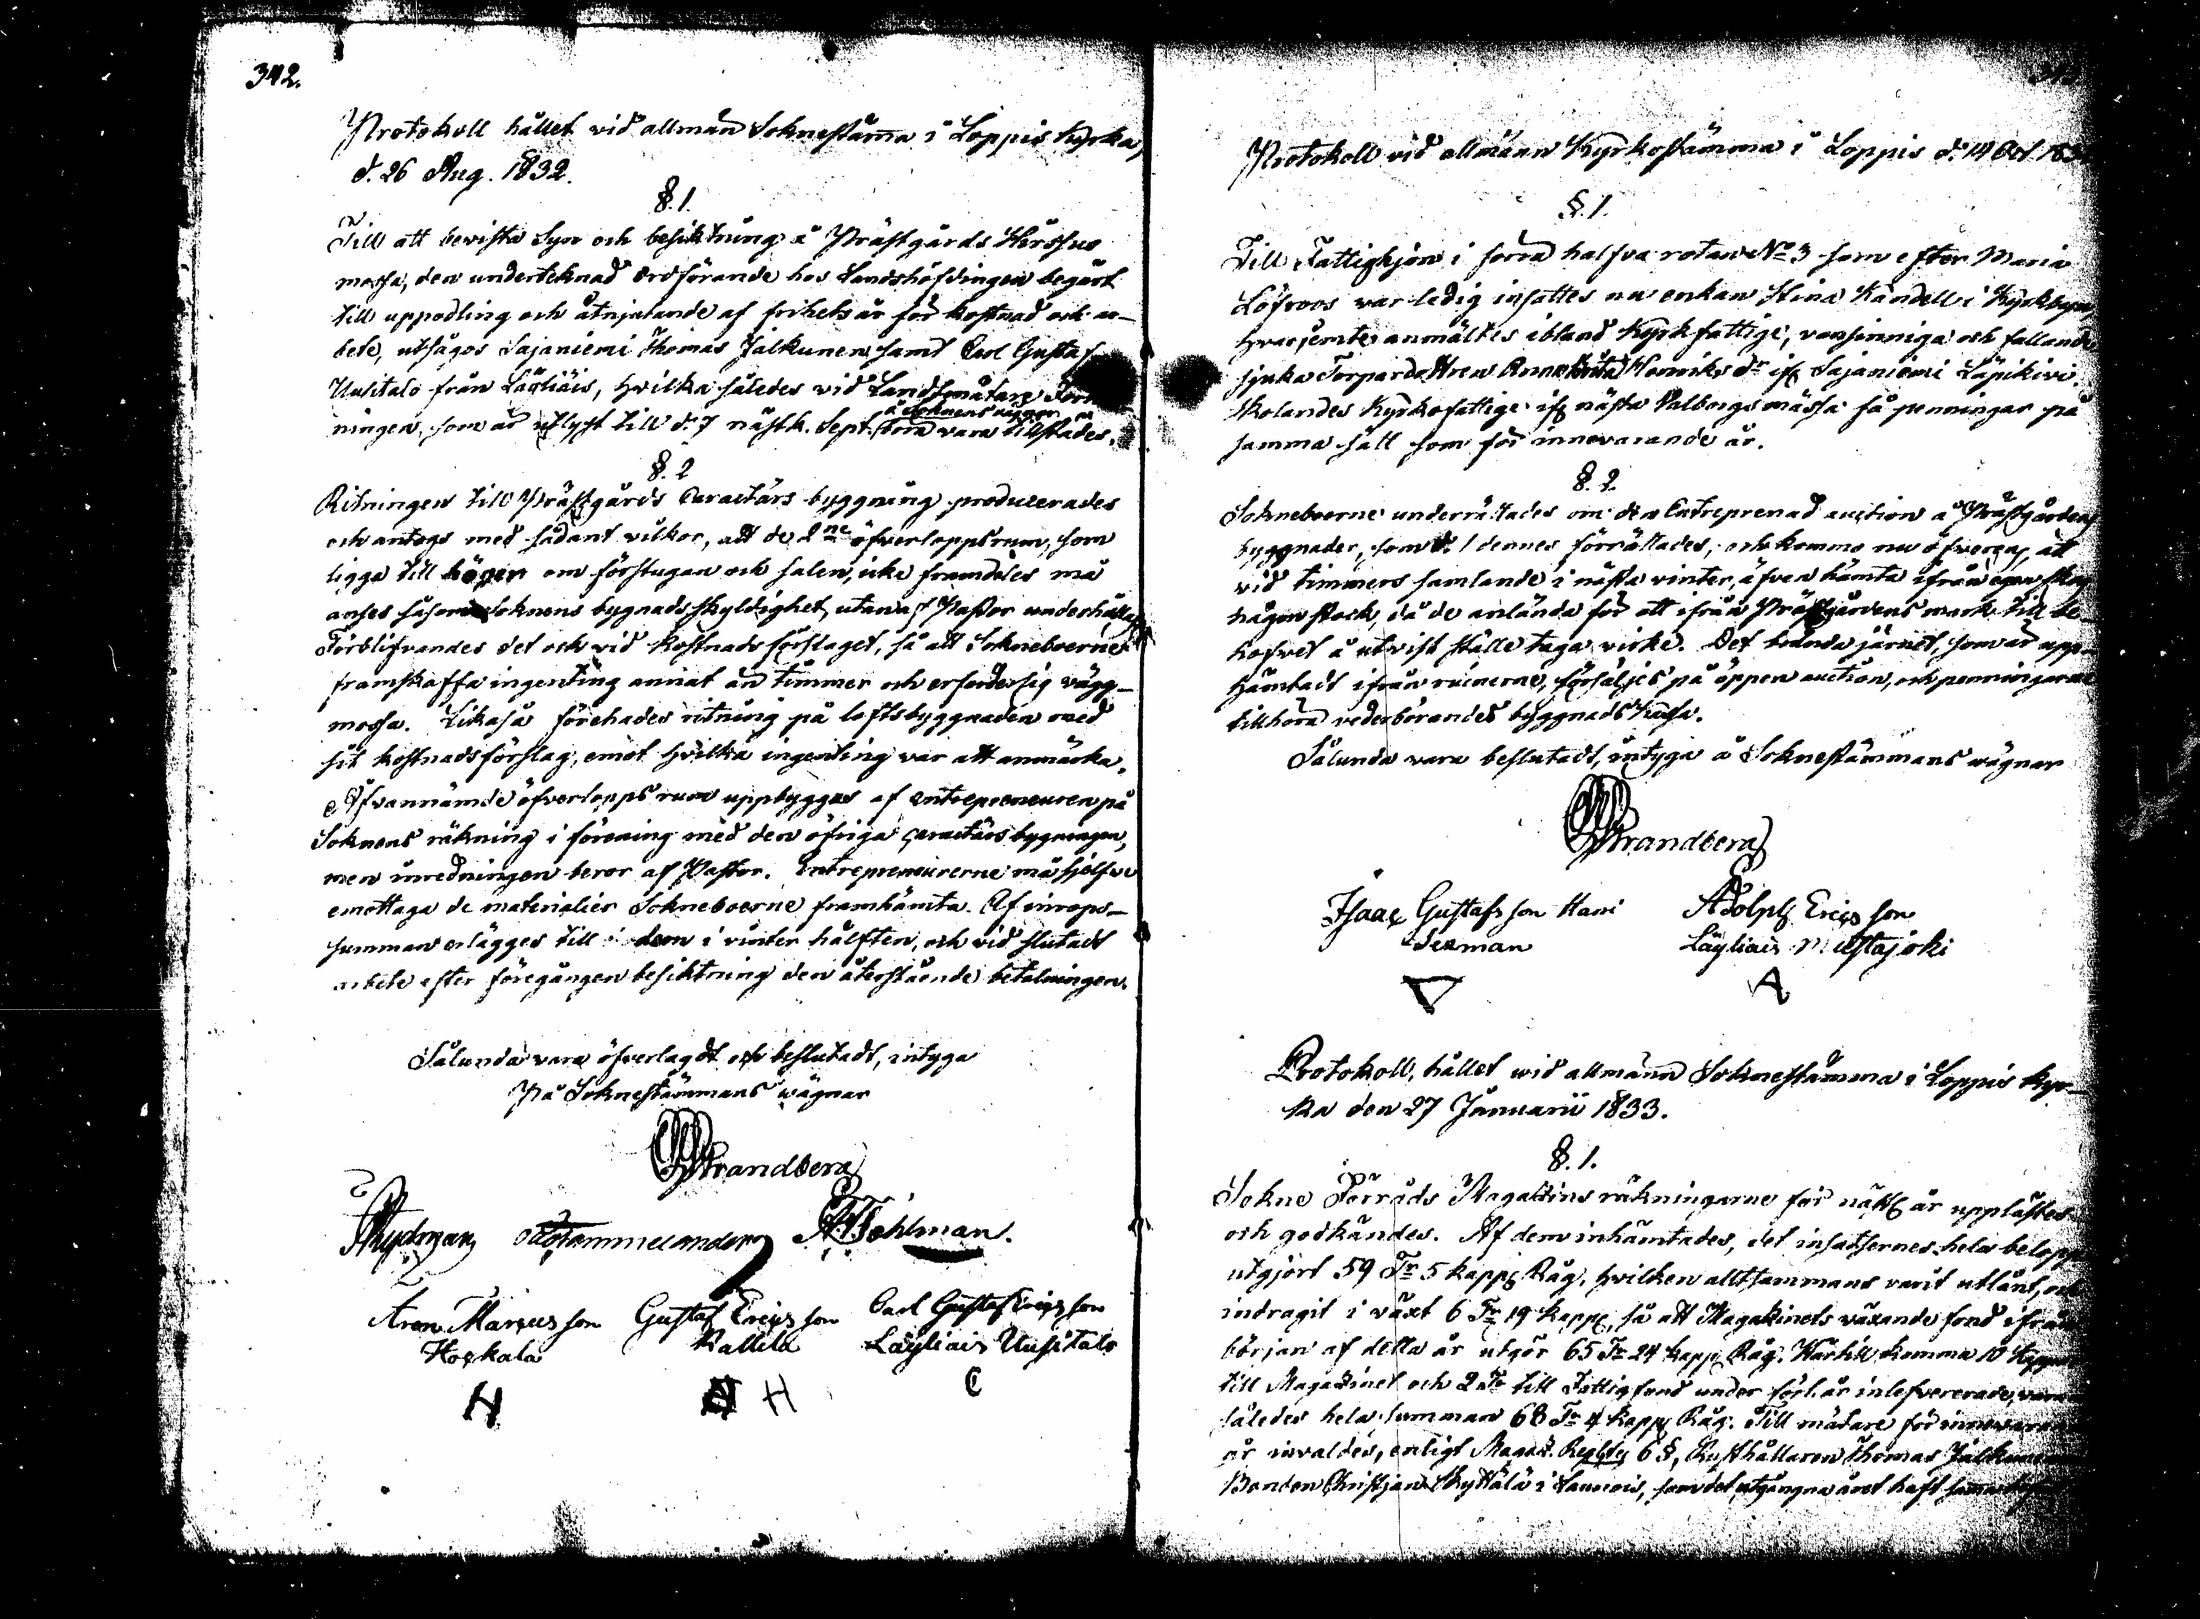 342.
Protokoll hållet vid allmän Soknestäma i Loppis Kyrka,
d. 26 Aug. 1832.
§. 1.
Till att bevista Syn och besiktning å Prästgårds
mossa, den underteknad Ordförande hos Landshöfdingen begärt
till uppodling och åtnjutande af frihets år för kostnad och ar-
bete, utsågos Sajaniemi Thomas Jalkunen samt Carl Gustaf
Uusitalo från Läyliäis, hvilka således vid Landtmätare
ningen, som är utlyst till d. 7 nästk. Sept. å Soknens vägnar vara tillstädes.
§. 2
Ritningen till Prästgårds Caractärs byggning producerades
och antogs med sådant vilkor, att de 2ne öfverloppsrum, som
ligga till höger om förstugan och salen, icke framdeles må
anses såsom Soknens bygnads skyldighet, utan af Pastor underhållas
Förblifvandes det och vid kostnads förslaget, så att Sokneboerne
framskaffa ingenting annat än timmer och erforderlig vägg-
mossa. Likaså förehades ritning på loftsbyggnaden med
sit kostnadsförslag, emot hvilka ingenting var att anmärka.
Ofvannämde öfverlopps rum uppbygges af entrepreneuren på
Soknens räkning i förening med den öfriga caractärs bygningen,
men inredningen beror af Pastor. Entrepreneurerne må sjelfve
emottaga de materialier Sokneboerne framhämta. Af inrops-
summan erlägges till dem i vinter hälften, och vid slutadt
arbete efter föregången besiktning den återstående betalningen.
Sålunda vara öfverlagdt och beslutadt, intyga
På Soknestämmans vägnar
Strandberg
Aron Marcusson Gustaf Ericsson Carl Gustaf Ericsson
Hockala Kallila Läyliais Uusitalo
H H C
Protokoll vid allmänn Kyrkostämma i Loppis d. 14 Oct.
§. 1.
Till Fattighjon i förra halfva rotan No 3 som efter Maria
Löfroos var ledig insattes nu enkan Stina Kandell i
hvarjemte anmältes ibland Kyrkfattige, vansinniga och fallande
sjuka Torpare Anna Henriks dr if Sajaniemi Läpikivi.
Skolandes Kyrkofattige if nästa Valborgsmässa få penningar på
samma sätt som för innevarande år.
§. 2.
Sokneboerne underrättades om den Entreprenad auction å Prästgårdens
byggnader, som d. 1 dennes förrättades, och komma nu öfverens, att
vid timmers samlande i nästa vinter, äfven hämta ifrån egen skog
någon stock, då de anlända för att ifrån Prästgårdens mark till be-
hofvet å utvist ställe taga virke. Det brända järnet, som är upp-
hämtadt ifrån ruinerne, försäljes på öppen auction, och penningarne
tillhöra vederbörandes byggnads kassa.
Sålunda vara beslutadt, intyga å Soknestämmans vägnar
Strandberg
Isaac Gustafsson Adolph Ericsson
Sexman Läyliais Mustajoki
A
Protokoll, hållet vid allmänn Soknestämma i Loppis Kyr-
ka den 27 Januarii 1833.
§. 1.
Sokne Förråds Magazins räkningarne för näst år upplästes
och godkändes. Af dem inhämtades, det insatsernes hela belopp
utgjort 59 Tr 5 kapp Råg, hvilken allt sammans varit utlånt, och
indragit i växt 6 Tr 19 kapp, så att Magazinets växande fond ifrån
början af detta år utgör 65 Tr 24 kapp Råg. Härtill komma 10 kappar
till Magazinet och 2 Tr till Fattigfond under förl. år inlefvererade, vara
således hela summan 68 Tr 4 kapp Råg. Till mätare för innevarande
år invaldes, enligt Magaz. 6 §, Rusthållaren Thomas Jalkunen
Bonden Christjan Skyttälä i Launois, som det utgångna året haft